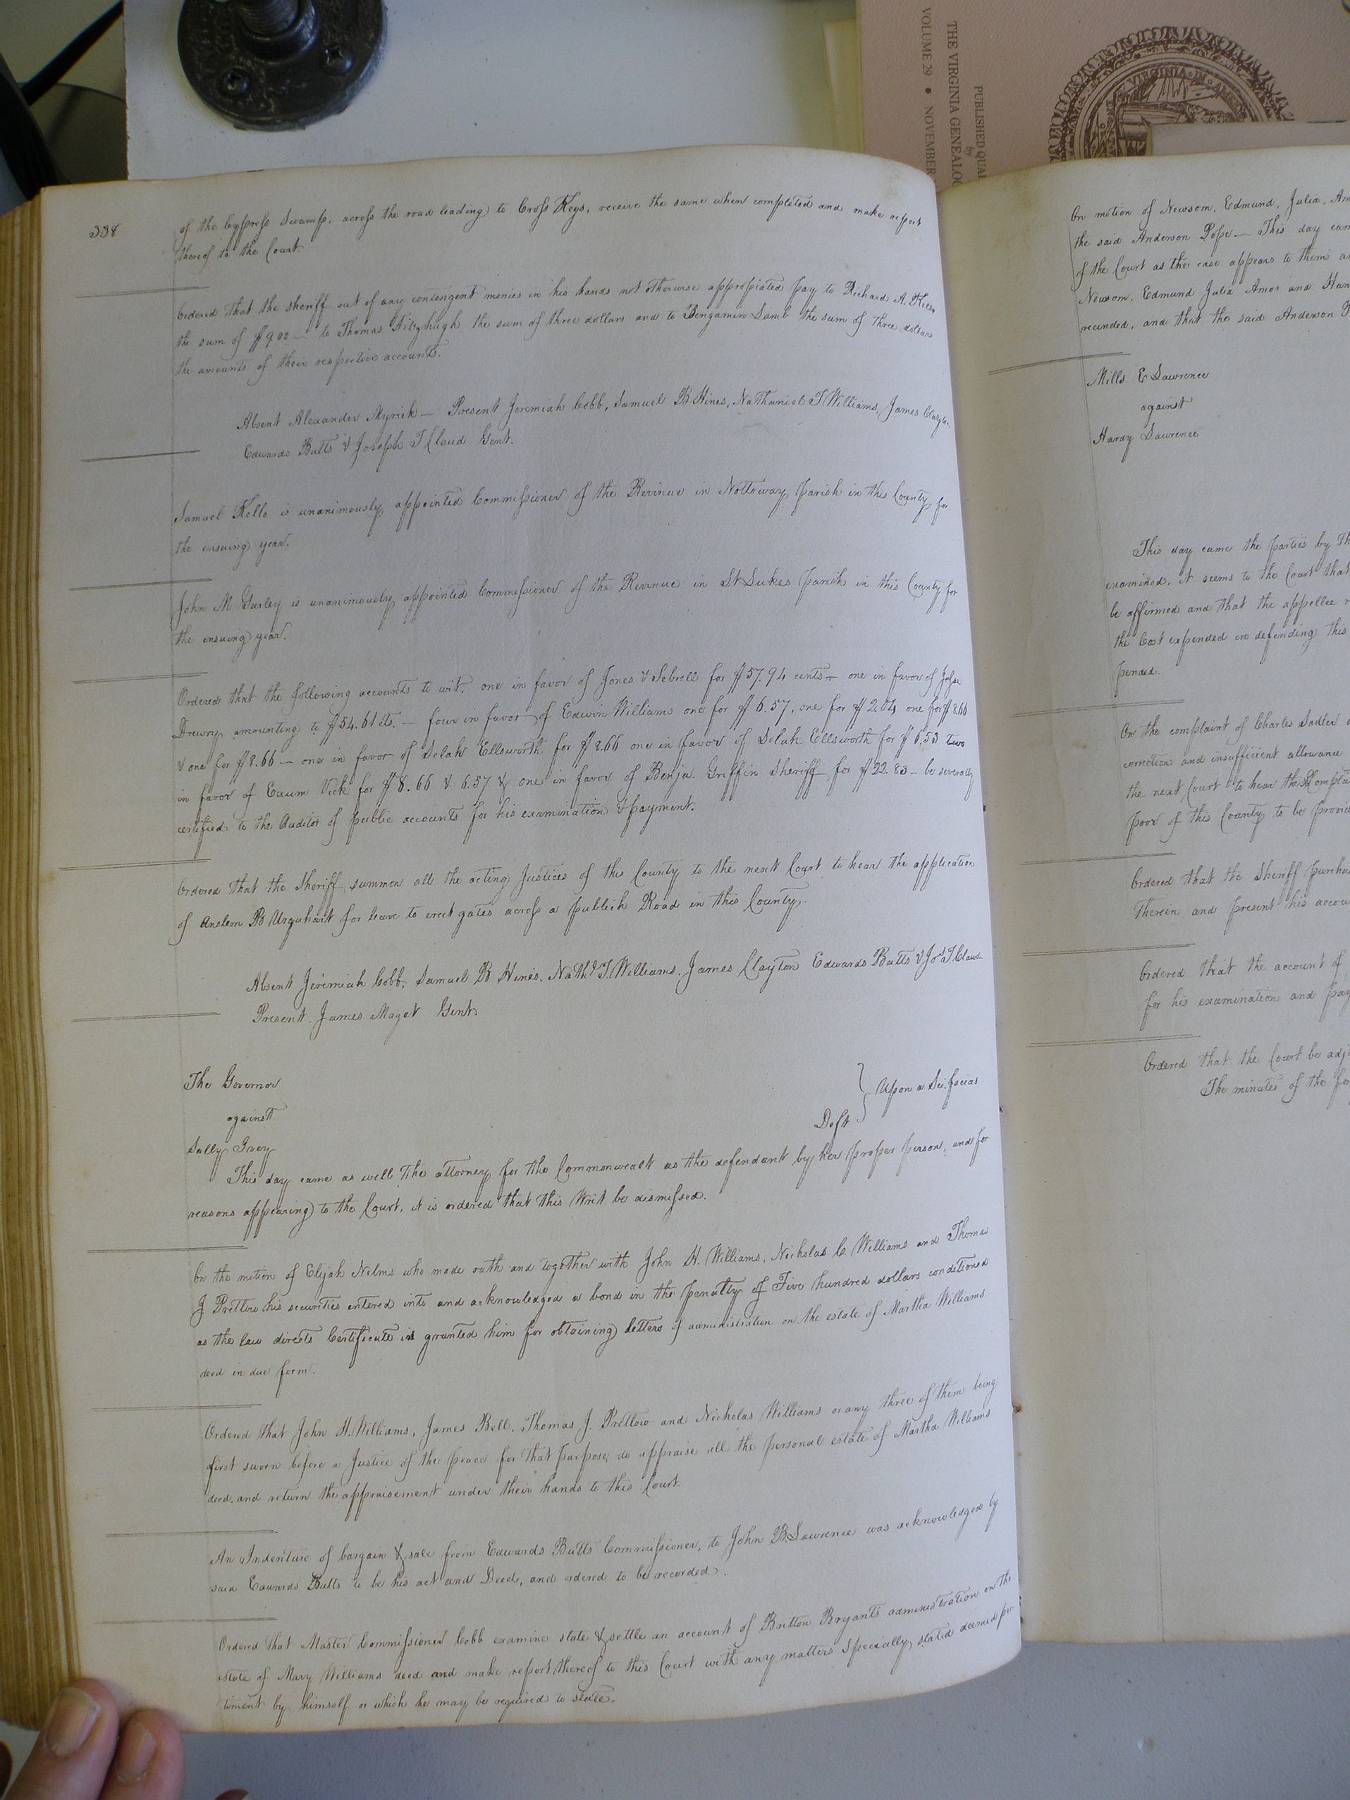 VOLUME 29 • NOVEMBER
THE VIRGINIA GENEALOG
by
PUBLISHED QUA
VIRGINIA IN AMER
338
of the Cypress Swamp, across the road leading to Cross Keys, receive the same when completed and make report
thereof to the Court.
Ordered that the sheriff out of any contingent monies in his hands not otherwise appropiated pay to Richard A.
the sum of $9.00 — to Thomas Fitzhugh the sum of three dollars and to Bengamin Lamb the sum of three dollars
the amounts of their respective accounts.
Absent Alexander Myrick — Present Jeremiah Cobb, Samuel B Hines, Nathaniel T Williams, James Clayton,
Edwards Butts & Joseph T Claud Gent.
Samuel Kello is unanimously appointed Commissioner of the Revinue in Nottoway Parish in this County for
the ensuing year.
John M Gurley is unanimously appointed Commissioner of the Revenue in St Lukes Parish in this County for
the ensuing year.
Ordered that the following accounts to wit, one in favor of Jones & Sebrell for $57.94 cents — one in favor of John
Drewry amounting to $54.61 cts. — four in favor of Edwin Williams one for $6.57, one for $2.04 one for $8.66
& one for $8.66 — one in favor of Selah Ellsworth for $8.66 one in favor of Selah Ellsworth for $6.53 two
in favor of Exum Vick for $8.66 & 6.57 & one in favor of Benja. Griffin Sheriff for $22.83 — be severally
certified to the Auditor of public accounts for his examination & payment.
Ordered that the Sheriff summon all the acting Justices of this County to the next Court to hear the application
of Anslem B Urquhart for leave to erect gates across a publick Road in this County.
Absent Jeremiah Cobb, Samuel B Hines, Nathl. T. Williams, James Clayton Edwards Butts & Jos. T. Claud
Present. James Maget Gent.
The Governor
against
Sally Ivey
Deft
Upon a Sci. facias
This day came as well the attorney for the Commonwealth as the defendant by her proper person, and for
reasons appearing to the Court, it is ordered that this Writ be dismissed.
On the motion of Elijah Nelms who made oath and together with John H. Williams, Nicholas C Williams and Thomas
J Pretlow his securities entered into and acknowledged a bond in the penalty of Five hundred dollars conditioned
as the law directs Certificate is granted him for obtaining letters of administration on the estate of Martha Williams
decd in due form.
Ordered that John H. Williams, James Bell, Thomas J. Pretlow and Nicholas Williams or any three of them being
first sworn before a Justice of the peace for that purpose, do appraise all the personal estate of Martha Williams
decd. and return the appraisement under their hands to this Court.
An Indenture of bargain & sale from Edwards Butts Commissioner, to John B. Lawrence was acknowledged by
said Edwards Butts to be his act and Deed, and ordered to be recorded.
Ordered that Master Commissioner Cobb examine state & settle an account of Britton Bryants administration on the
estate of Mary Williams decd and make report thereof to this Court with any matters specially stated deemed per
tinent by himself or which he may be required to state.
On motion of Newsom, Edmund, Julia, Am
the said Anderson Pope — This day cam
of the Court as the case appears to them a
Newsom, Edmund Julia Amos and Han
recinded, and that the said Anderson P
Mills E Lawrence
against
Hardy Lawrence
This day came the parties by th
examined, it seems to the Court that
be affirmed and that the appellee r
the Cost expended in defending this
pended.
On the complaint of Charles Sadler
correction and insufficient allowance
the next Court to hear the Compla
poor of this County to be provid
Ordered that the Sheriff purchas
therein and present his accou
Ordered that the account of
for his examination and pay
Ordered that the Court be adj
The minutes of the for